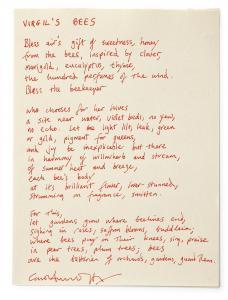 VIRGIL'S BEES
Bless air's gift of sweetness, honey
from the bees, inspired by clover,
marigold, eucalyptus, thyme,
the hundred perfumes of the wind.
Bless the beekeeper
who chooses for her hives
a site near water, violet beds, no yew,
no echo. Let the light lilt, leak, green
or gold, pigment for queens,
and joy be inexplicable but there
in harmony of willowherb and stream,
of summer heat and breeze,
each bee's body
at its brilliant flower, lover-stunned,
strumming on fragrance, smitten.
For this,
let gardens grow, where beelines end,
sighing in roses, saffron blooms, buddleia;
where bees pray on their knees, sing, praise
in pear trees, plum trees; bees
are the batteries of orchards, gardens, guard them.